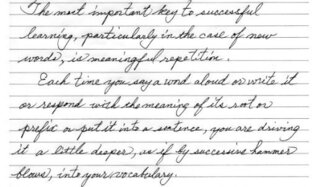 The most important key to successful
learning, particularly in the case of new
words, is meaningful repetition.
Each time you say a word aloud or write it
or respond with the meaning of its root or
prefix or put it into a sentence, you are driving
it a little deeper, as if by successive hammer
blows, into your vocabulary.